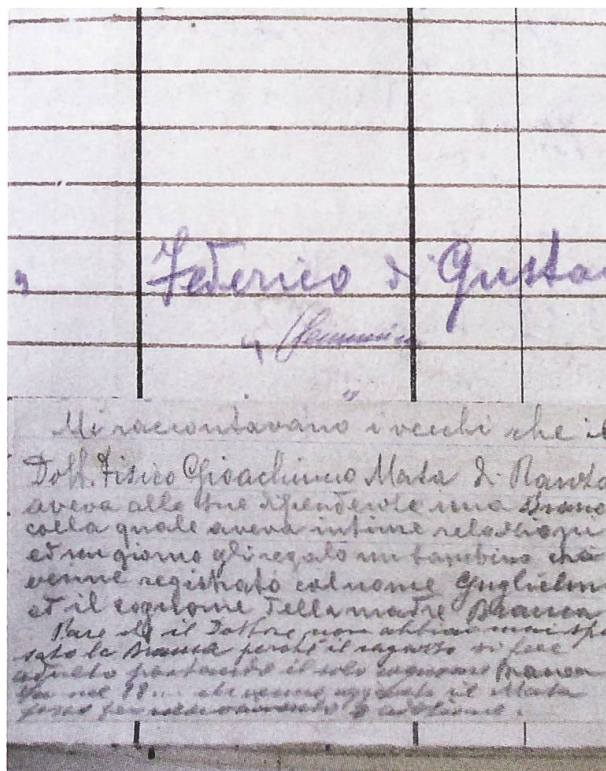 " Federico di Gusta
"
Mi raccontavano i vecchi che il
Dott. Fisico Gioachimo Mata di Ranzo
aveva alle sue dipendenze una
colla quale aveva intime relazioni
ed un giorno gli regalo un bambino che
venne registrato col nome Guglielm
et il cognome della madre Branca
Pare che il Dottore non abbia mai spo
sato la Branca perché il ragazzo si fece
adulto portando il solo cognome Branca
nel 18... che venne il Mata
forse per o adozione.